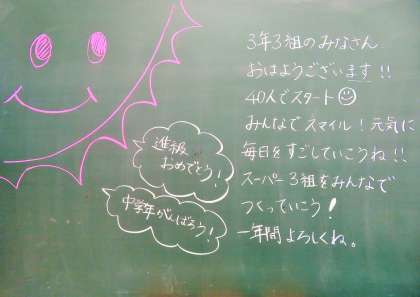 3年3組のみなさん
おはようございます!!
40人でスタート☺
みんなでスマイル!元気に
毎日をすごしていこうね!!
スーパー3組をみんなで
つくっていこう!
一年間よろしくね。
進級
おめでとう!
中学年がんばろう!